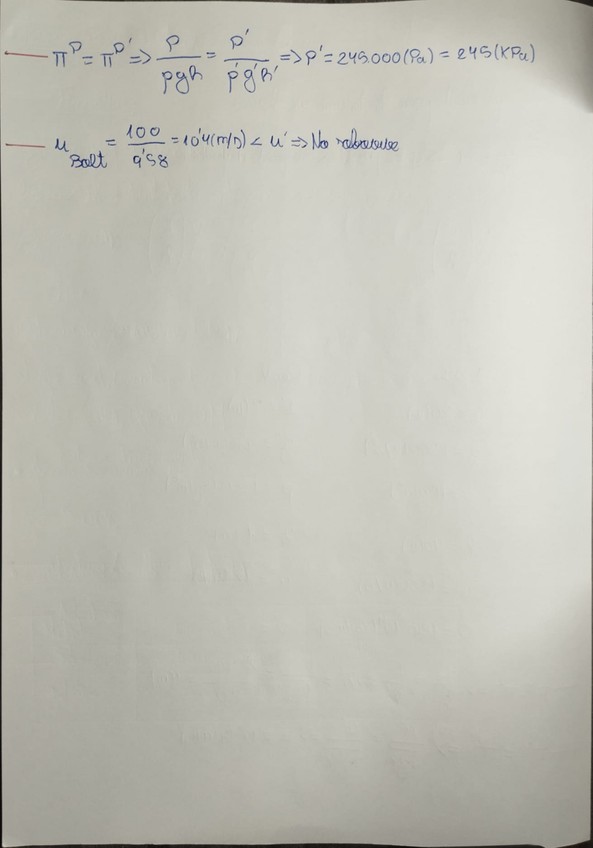 π^p = π^p' => p/ρgh = p'/ρ'g'h' => p' = 245.000 (Pa) = 245 (KPa)
u_Bolt = 100/9'58 = 10'4 (m/s) < u' => No